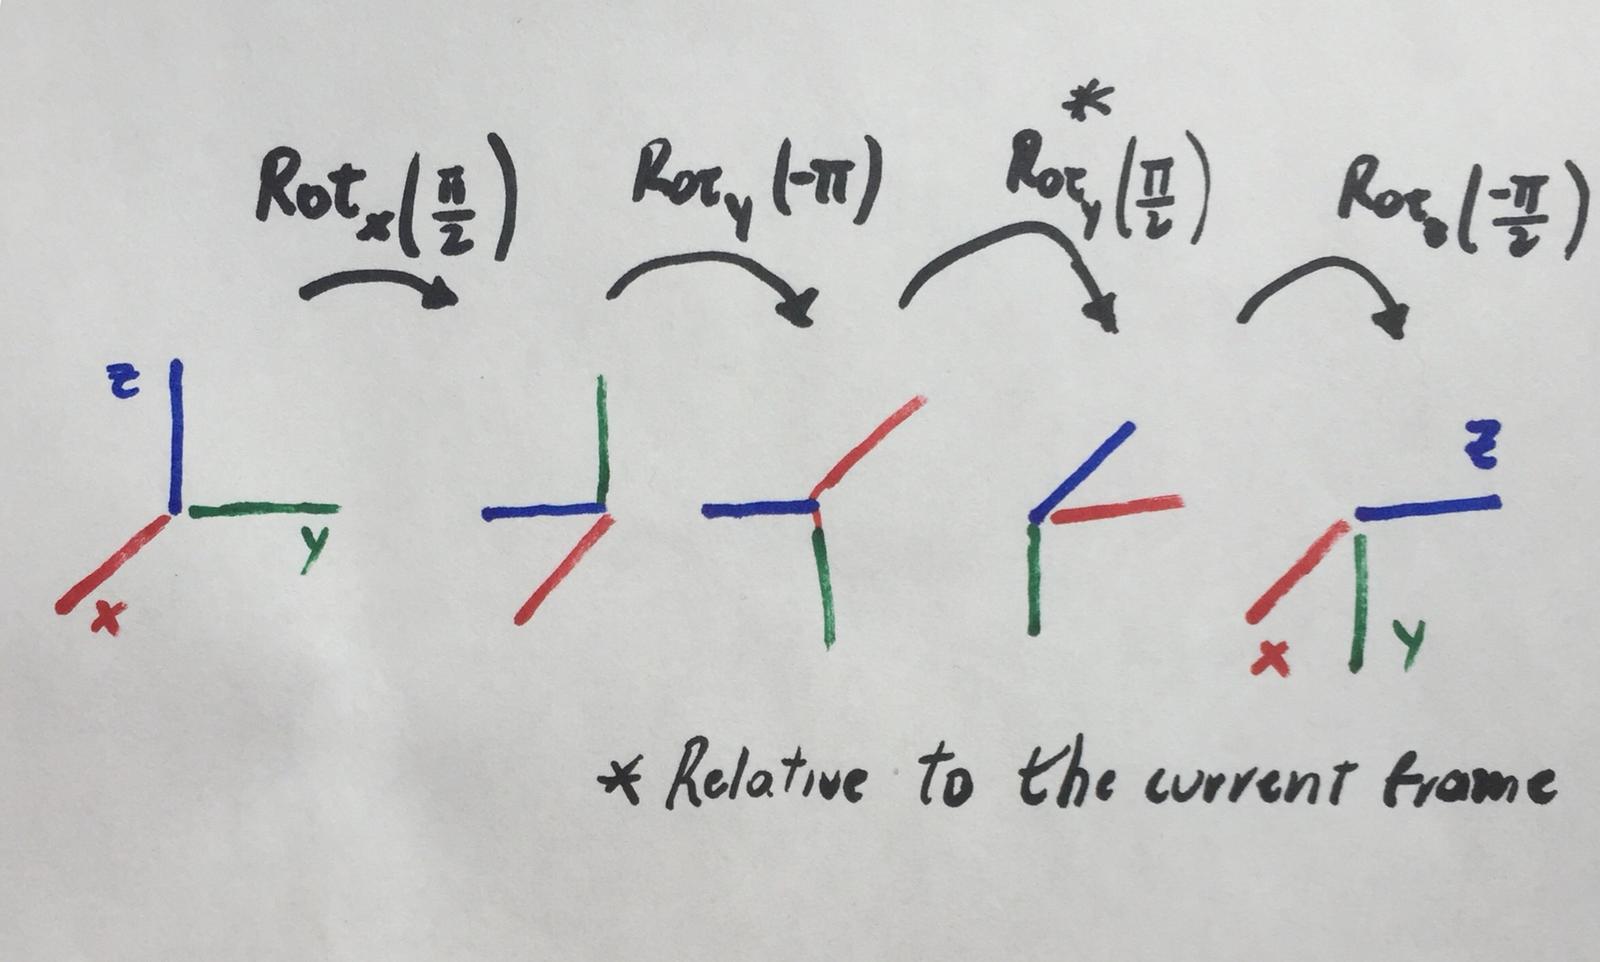 *
Rot_x(π/2) Rot_y(-π) Rot_y(π/2) Rot_z(-π/2)
z z
y
x y
x
* Relative to the current frame